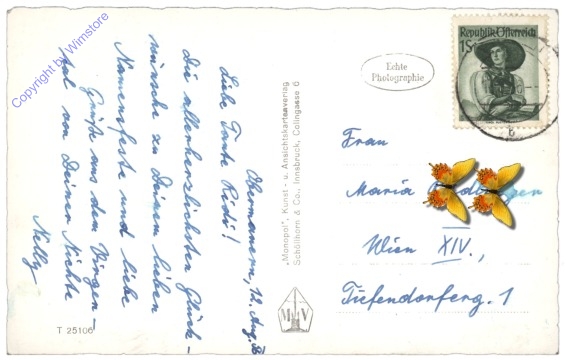 Copyright by Wimstore
Obermauern, 12. Aug. 56
Liebe Tante Riedi!
Die allerherzlichsten Glück-
wünsche zu Deinem lieben
Namensfeste und liebe
Grüße aus dem Virgen-
tal von Deiner Nichte
Nelly
T 25106
"Monopol", Kunst- u. Ansichtskartenverlag
Schöllhorn & Co., Innsbruck, Colingasse 6
M V
Echte
Photographie
Republik Österreich
1S
Frau
Maria
Wien XIV.,
Tiefendorferg. 1